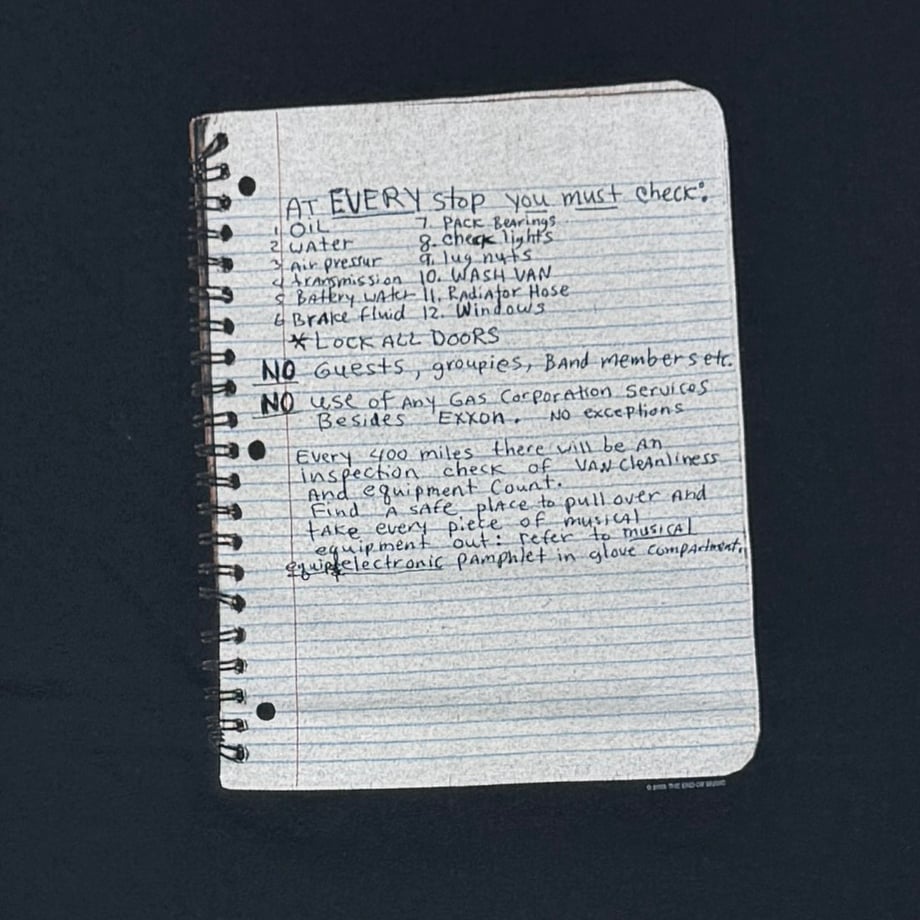 AT EVERY stop you must check:
1 OIL 7. PACK Bearings
2 WAter 8. check lights
3 Air pressur 9. lug nuts
4 transmission 10. WASH VAN
5 BAttery WAter 11. RAdiAtor Hose
6 BrAke fluid 12. Windows
* LOCK ALL DOORS
NO Guests, groupies, BAnd members etc.
NO use of Any GAS Corporation Services
Besides Exxon. NO exceptions
Every 400 miles there will be An
inspection check of VAN CleAnliness
And equipment Count.
Find A sAfe place to pull over And
tAke every piece of musicAl
equipment out: refer to musicAl
equip electronic pAmphlet in glove compArtment.
© THE END OF MUSIC